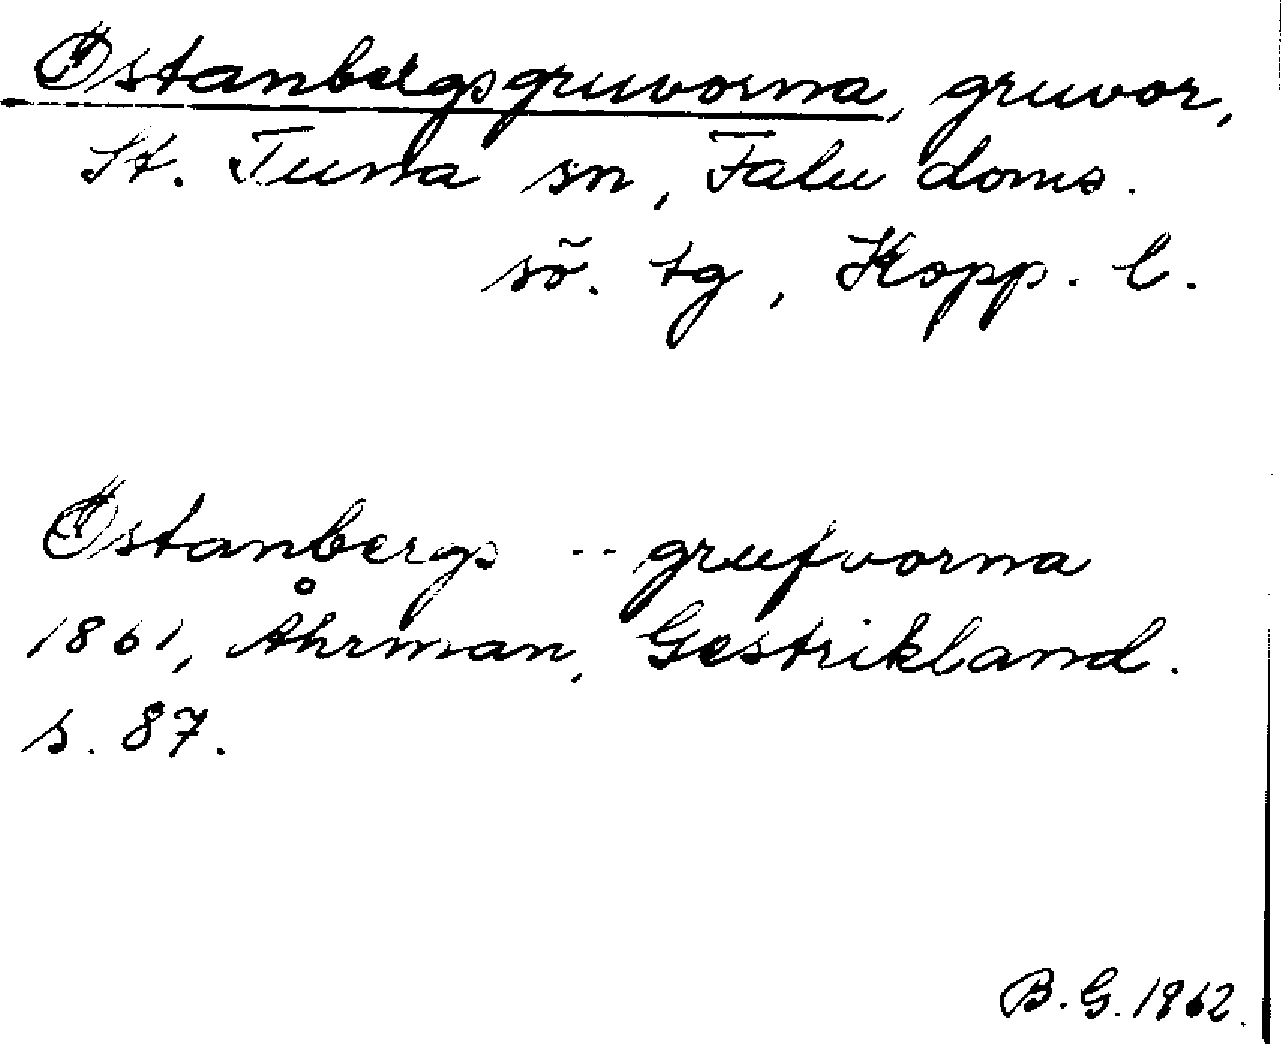 Östanbergsgruvorna, gruvor,
St. Tuna sn, Falu doms.
sö. tg, Kopp. l.
Östanbergs -- grufvorna
1861, Åhrman, Gestrikland.
s. 87.
B. G. 1962.